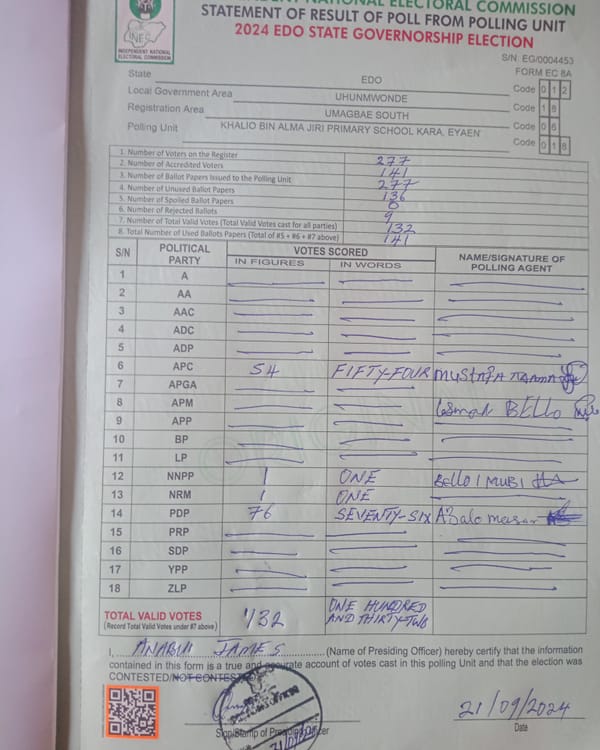 INDEPENDENT NATIONAL ELECTORAL COMMISSION
STATEMENT OF RESULT OF POLL FROM POLLING UNIT
2024 EDO STATE GOVERNORSHIP ELECTION
INEC
INDEPENDENT NATIONAL
ELECTORAL COMMISSION
S/N: EG/0004453
FORM EC 8A
State EDO Code 0 1 2
Local Government Area UHUNMWONDE Code 1 8
Registration Area UMAGBAE SOUTH Code 0 6
Polling Unit KHALIO BIN ALMA JIRI PRIMARY SCHOOL KARA, EYAEN Code 0 1 8
1. Number of Voters on the Register 277
2. Number of Accredited Voters 141
3. Number of Ballot Papers Issued to the Polling Unit 277
4. Number of Unused Ballot Papers 136
5. Number of Spoiled Ballot Papers 0
6. Number of Rejected Ballots 9
7. Number of Total Valid Votes (Total Valid Votes cast for all parties) 132
8. Total Number of Used Ballots Papers (Total of #5 + #6 + #7 above) 141
S/N POLITICAL PARTY VOTES SCORED NAME/SIGNATURE OF POLLING AGENT
IN FIGURES IN WORDS
1 A
2 AA
3 AAC
4 ADC
5 ADP
6 APC 54 FIFTY-FOUR Mustafa
7 APGA
8 APM BELLO
9 APP
10 BP
11 LP
12 NNPP 1 ONE Bello
13 NRM 1 ONE
14 PDP 76 SEVENTY-SIX
15 PRP
16 SDP
17 YPP
18 ZLP
TOTAL VALID VOTES 132 ONE HUNDRED
(Record Total Valid Votes under #7 above) AND THIRTY-TWO
I, JAMES (Name of Presiding Officer) hereby certify that the information
contained in this form is a true and accurate account of votes cast in this polling Unit and that the election was
CONTESTED/NOT CONTESTED
21/09/2024
Sign/Stamp of Presiding Officer Date